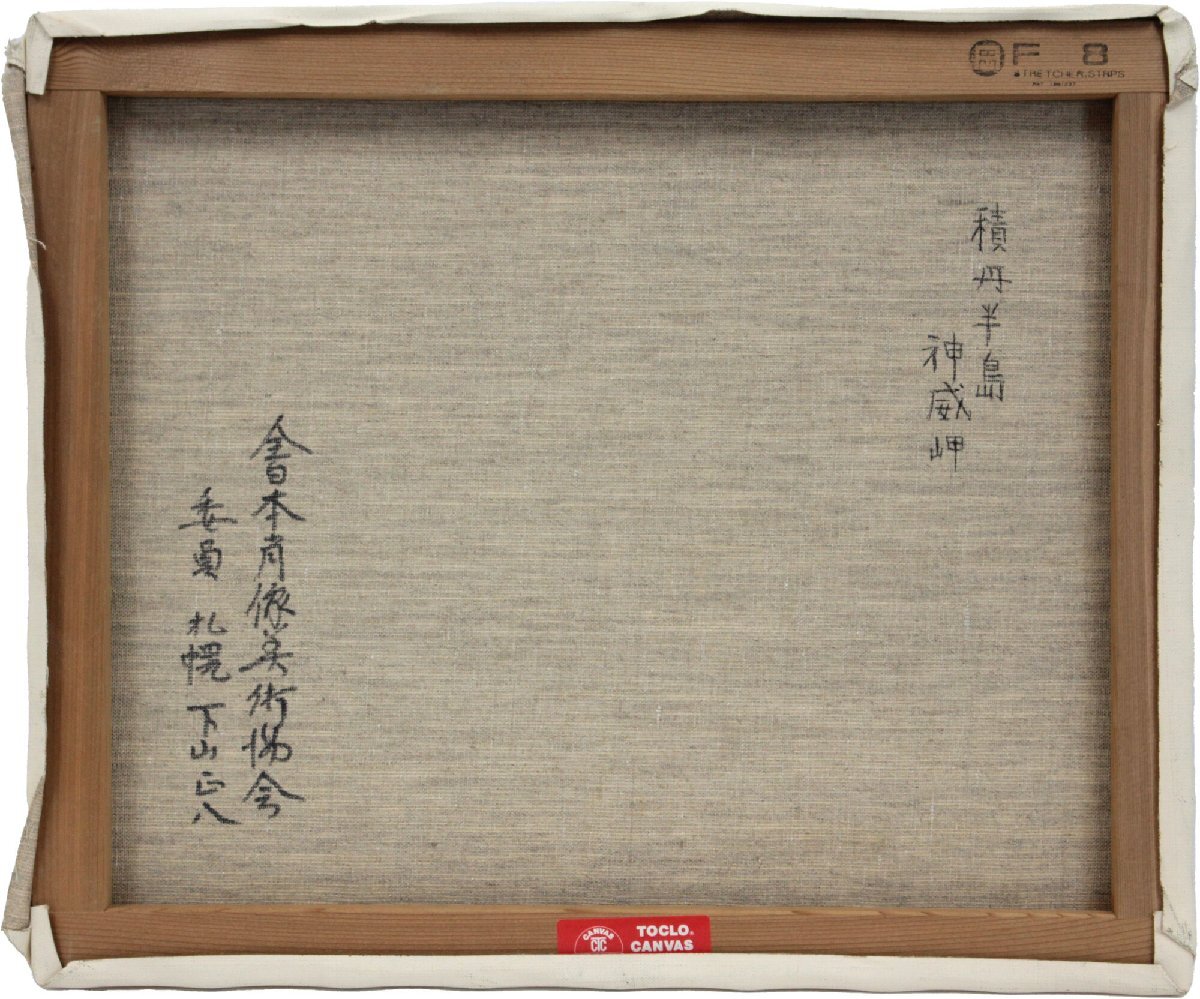 F 8
STRETCHER.STRPS
積丹半島
神威岬
全日本肖像美術協会
委員 札幌 下山正八
CANVAS
CTC
TOCLO®
CANVAS